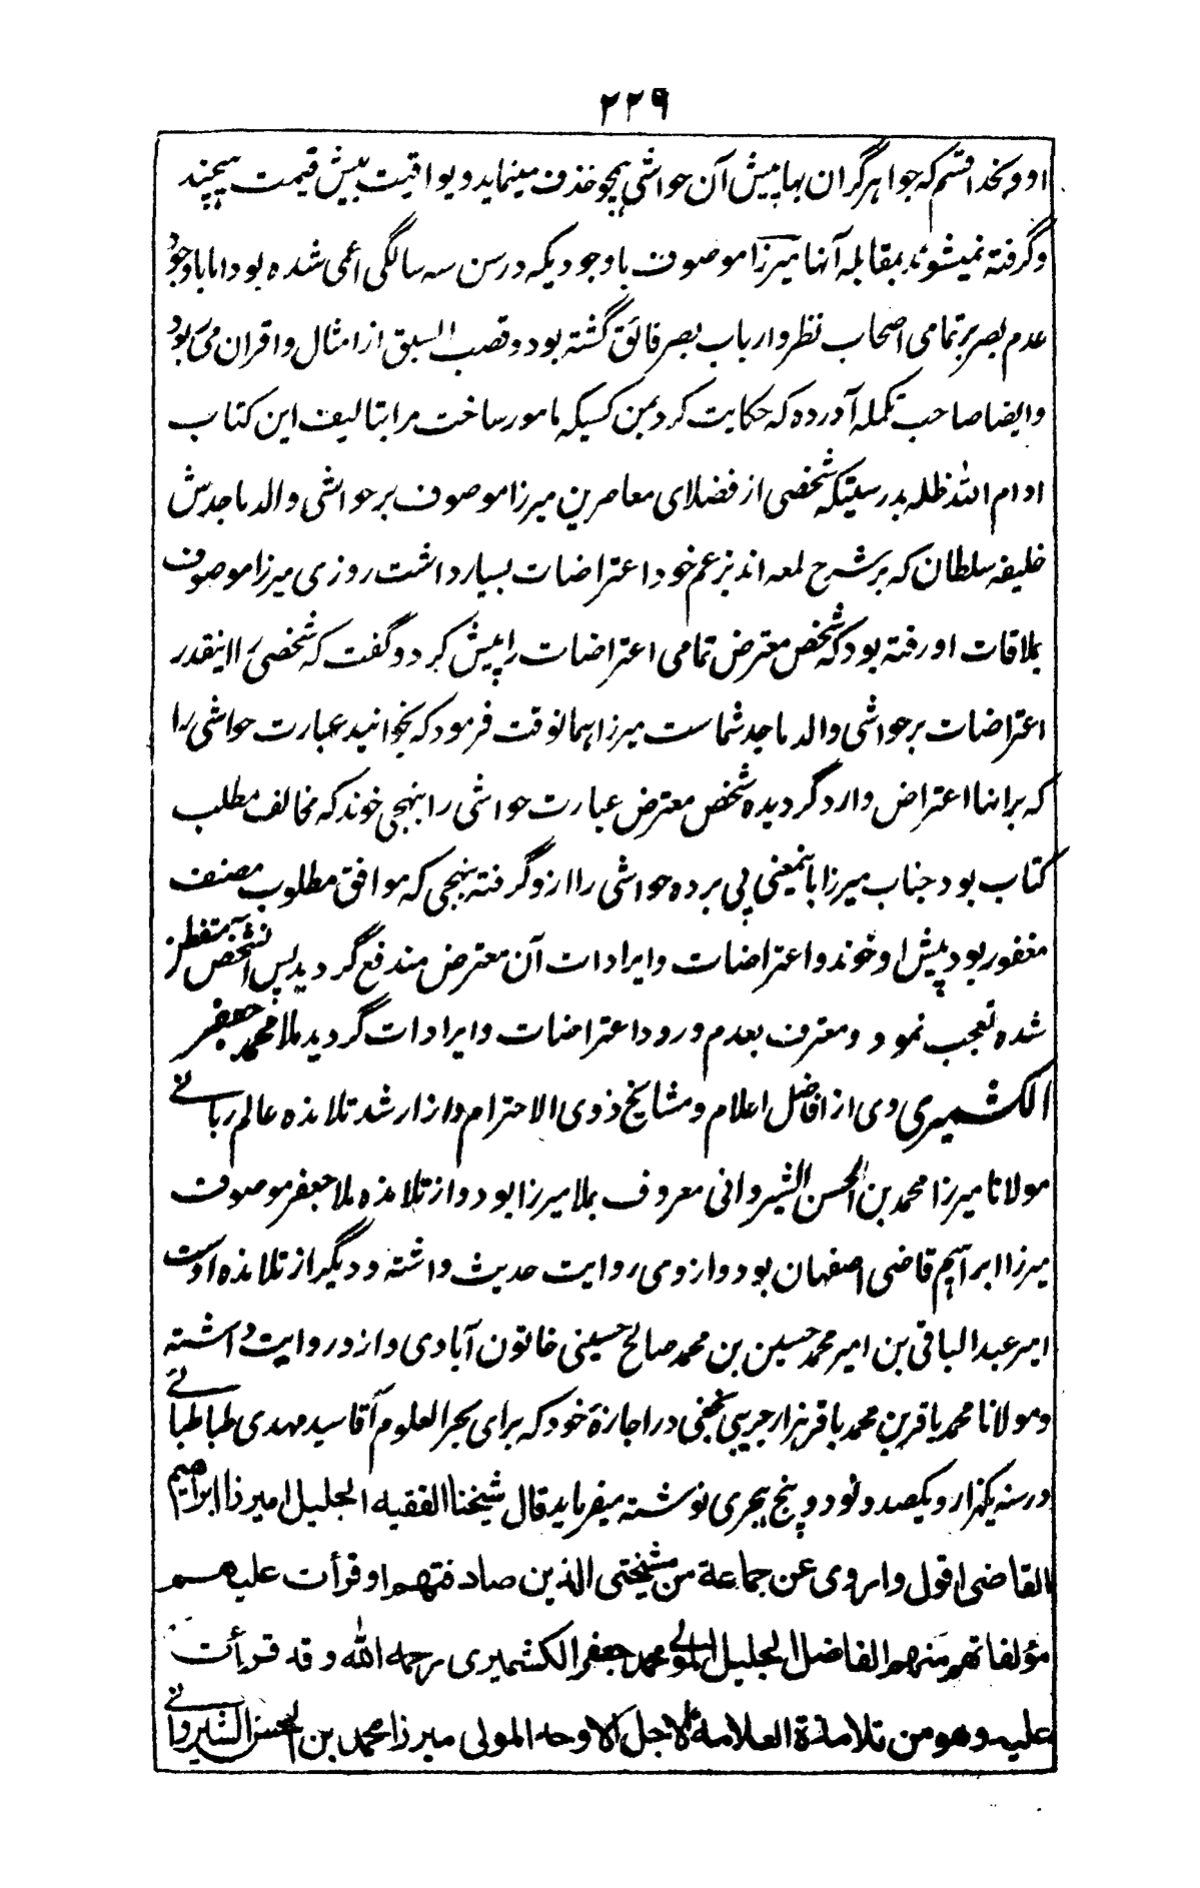 ۲۲۹
او و بخدا قسم که جواهر گران بها پیش آن حواشی همچو خذف مینماید و یواقیت بیش قیمت بهیچ
و گرفته نمیشوند بمقابله آنها میرزا موصوف باوجودیکه در سن سه سالگی اعمی شده بود اما باوجود
عدم بصر بر تمامی اصحاب نظر و ارباب بصر فائق گشته بود و قصب السبق از امثال و اقران می ربود
و ایضا صاحب تکمله آورده که حکایت کرد بمن کسیکه مامور ساخت مرا بتالیف این کتاب
ادام الله ظله بدرستیکه شخصی از فضلای معاصرین میرزا موصوف بر حواشی والد ماجدش
خلیفه سلطان که بر شرح لمعه اند بزعم خود اعتراضات بسیار داشت روزی میرزا موصوف
بملاقات او رفته بود که شخص معترض تمامی اعتراضات را پیش کرد و گفت که شخصی را اینقدر
اعتراضات بر حواشی والد ماجد شماست میرزا همانوقت فرمود که بخوانید عبارت حواشی را
که بر انها اعتراض وارد گردیده شخص معترض عبارت حواشی را بنهجی خوند که مخالف مطلب
کتاب بود جناب میرزا باینمعنی پی برده حواشی را ازو گرفته بنهجی که موافق مطلوب مصنف
مغفور بود پیش او خوند و اعتراضات و ایرادات آن معترض مندفع گردید پس آنشخص متفطن
شده تعجب نمود و معترف بعدم ورود اعتراضات و ایرادات گردید ملا محمد جعفر
الکشمیری وی از افاضل اعلام و مشایخ ذوی الاحترام و از ارشد تلامذه عالم ربانی
مولانا میرزا محمد بن الحسن الشیروانی معروف بملا میرزا بود و از تلامذه ملا جعفر موصوف
میرزا ابراهیم قاضی اصفهان بود و از وی روایت حدیث داشته و دیگر از تلامذه اوست
امیر عبد الباقی بن امیر محمد حسین بن محمد صالح حسینی خاتون آبادی و ازو روایت داشته
و مولانا محمد باقر بن محمد باقر هزارجریبی نجفی در اجازهٔ خود که برای بحر العلوم آقا سید مهدی طباطبائی
در سنه یکهزار و یکصد و نود و پنج هجری نوشته میفرماید قال شیخنا الفقیه الجلیل امیرزا ابراهیم
القاضی اقول و اروی عن جماعة من مشیختی الذین صادفتهم او قرأت علیهم
مؤلفاتهم منهم الفاضل الجلیل المولی محمد جعفر الکشمیری رحمه الله وقد قرأت
علیه وهو من تلامذة العلامة الاجل الاوحد المولی میرزا محمد بن الحسن الشیروانی